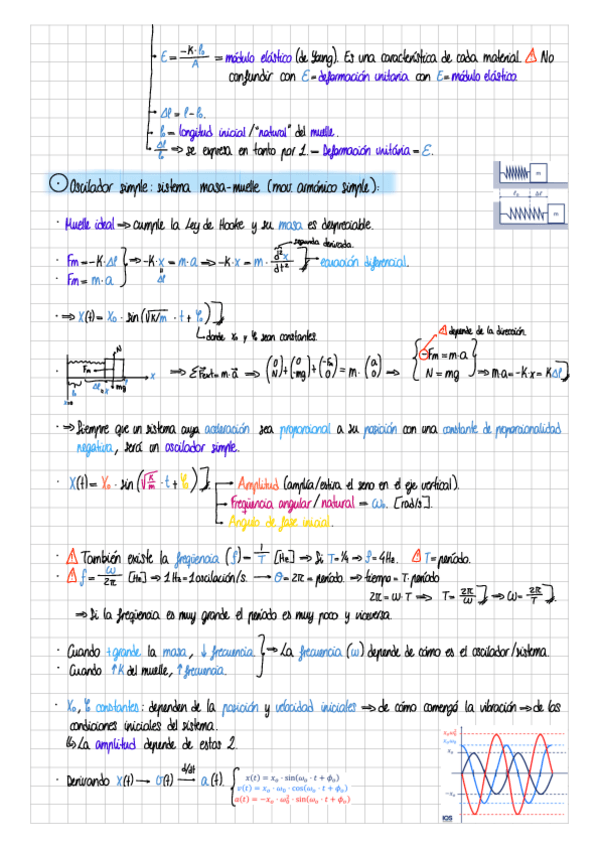 E = -K·l₀ / A = módulo elástico (de Young). Es una característica de cada material. ⚠ No
confundir con ε = deformación unitaria con E = módulo elástico.
Δl = l - l₀.
l₀ = longitud inicial / "natural" del muelle.
Δl/l₀ ⇒ se expresa en tanto por 1. — Deformación unitária = ε.
Oscilador simple: sistema masa-muelle (mov. armónico simple):
m
F₀ Δl
m
· Muelle ideal ⇒ cumple la Ley de Hooke y su masa es despreciable.
segunda derivada.
· Fm = -K·Δl ⇒ -K·x = m·a ⇒ -K·x = m · d²x/dt² ⇒ ecuación diferencial.
· Fm = m·a
· ⇒ X(t) = X₀ · sin(√K/m · t + φ₀)
donde x₀ y φ₀ son constantes.
⚠ depende de la dirección.
N Fm mg l₀ Δl x x=0
⇒ ΣFext = m·a ⇒ (0 N) + (0 -mg) + (-Fm 0) = m · (a 0) ⇒ { -Fm = m·a
N = mg } ⇒ m·a = -K·x = KΔl
· ⇒ Siempre que un sistema cuya aceleración sea proporcional a su posición con una constante de proporcionalidad
negativa, será un oscilador simple.
· X(t) = X₀ · sin(√K/m · t + φ₀)
Amplitud (amplía/estira el seno en el eje vertical).
Freqüencia angular / natural = ω₀. [rad/s].
Angulo de fase inicial.
· ⚠ También existe la freqüencia (f) = 1/T [Hz] ⇒ Si T = 1/4 ⇒ f = 4Hz. ⚠ T = período.
· ⚠ f = ω/2π [Hz] ⇒ 1Hz = 1 oscilación/s. → θ = 2π = período. ⇒ tiempo = T·período
2π = ω·T ⇒ T = 2π/ω ⇒ ω = 2π/T
⇒ Si la freqüencia es muy grande el período es muy poco y viceversa.
· Cuando +grande la masa, ↓ frecuencia.
⇒ La frecuencia (ω) depende de cómo es el oscilador/sistema.
· Cuando ↑K del muelle, ↑ frecuencia.
· X₀, φ₀ constantes: dependen de la posición y velocidad iniciales ⇒ de cómo comenzó la vibración ⇒ de las
condiciones iniciales del sistema.
↳ La amplitud depende de estas 2.
· Derivando X(t) → v(t) d/dt → a(t).
x(t) = x₀ · sin(ω₀ · t + ϕ₀)
v(t) = x₀ · ω₀ · cos(ω₀ · t + ϕ₀)
a(t) = -x₀ · ω₀² · sin(ω₀ · t + ϕ₀)
IQS